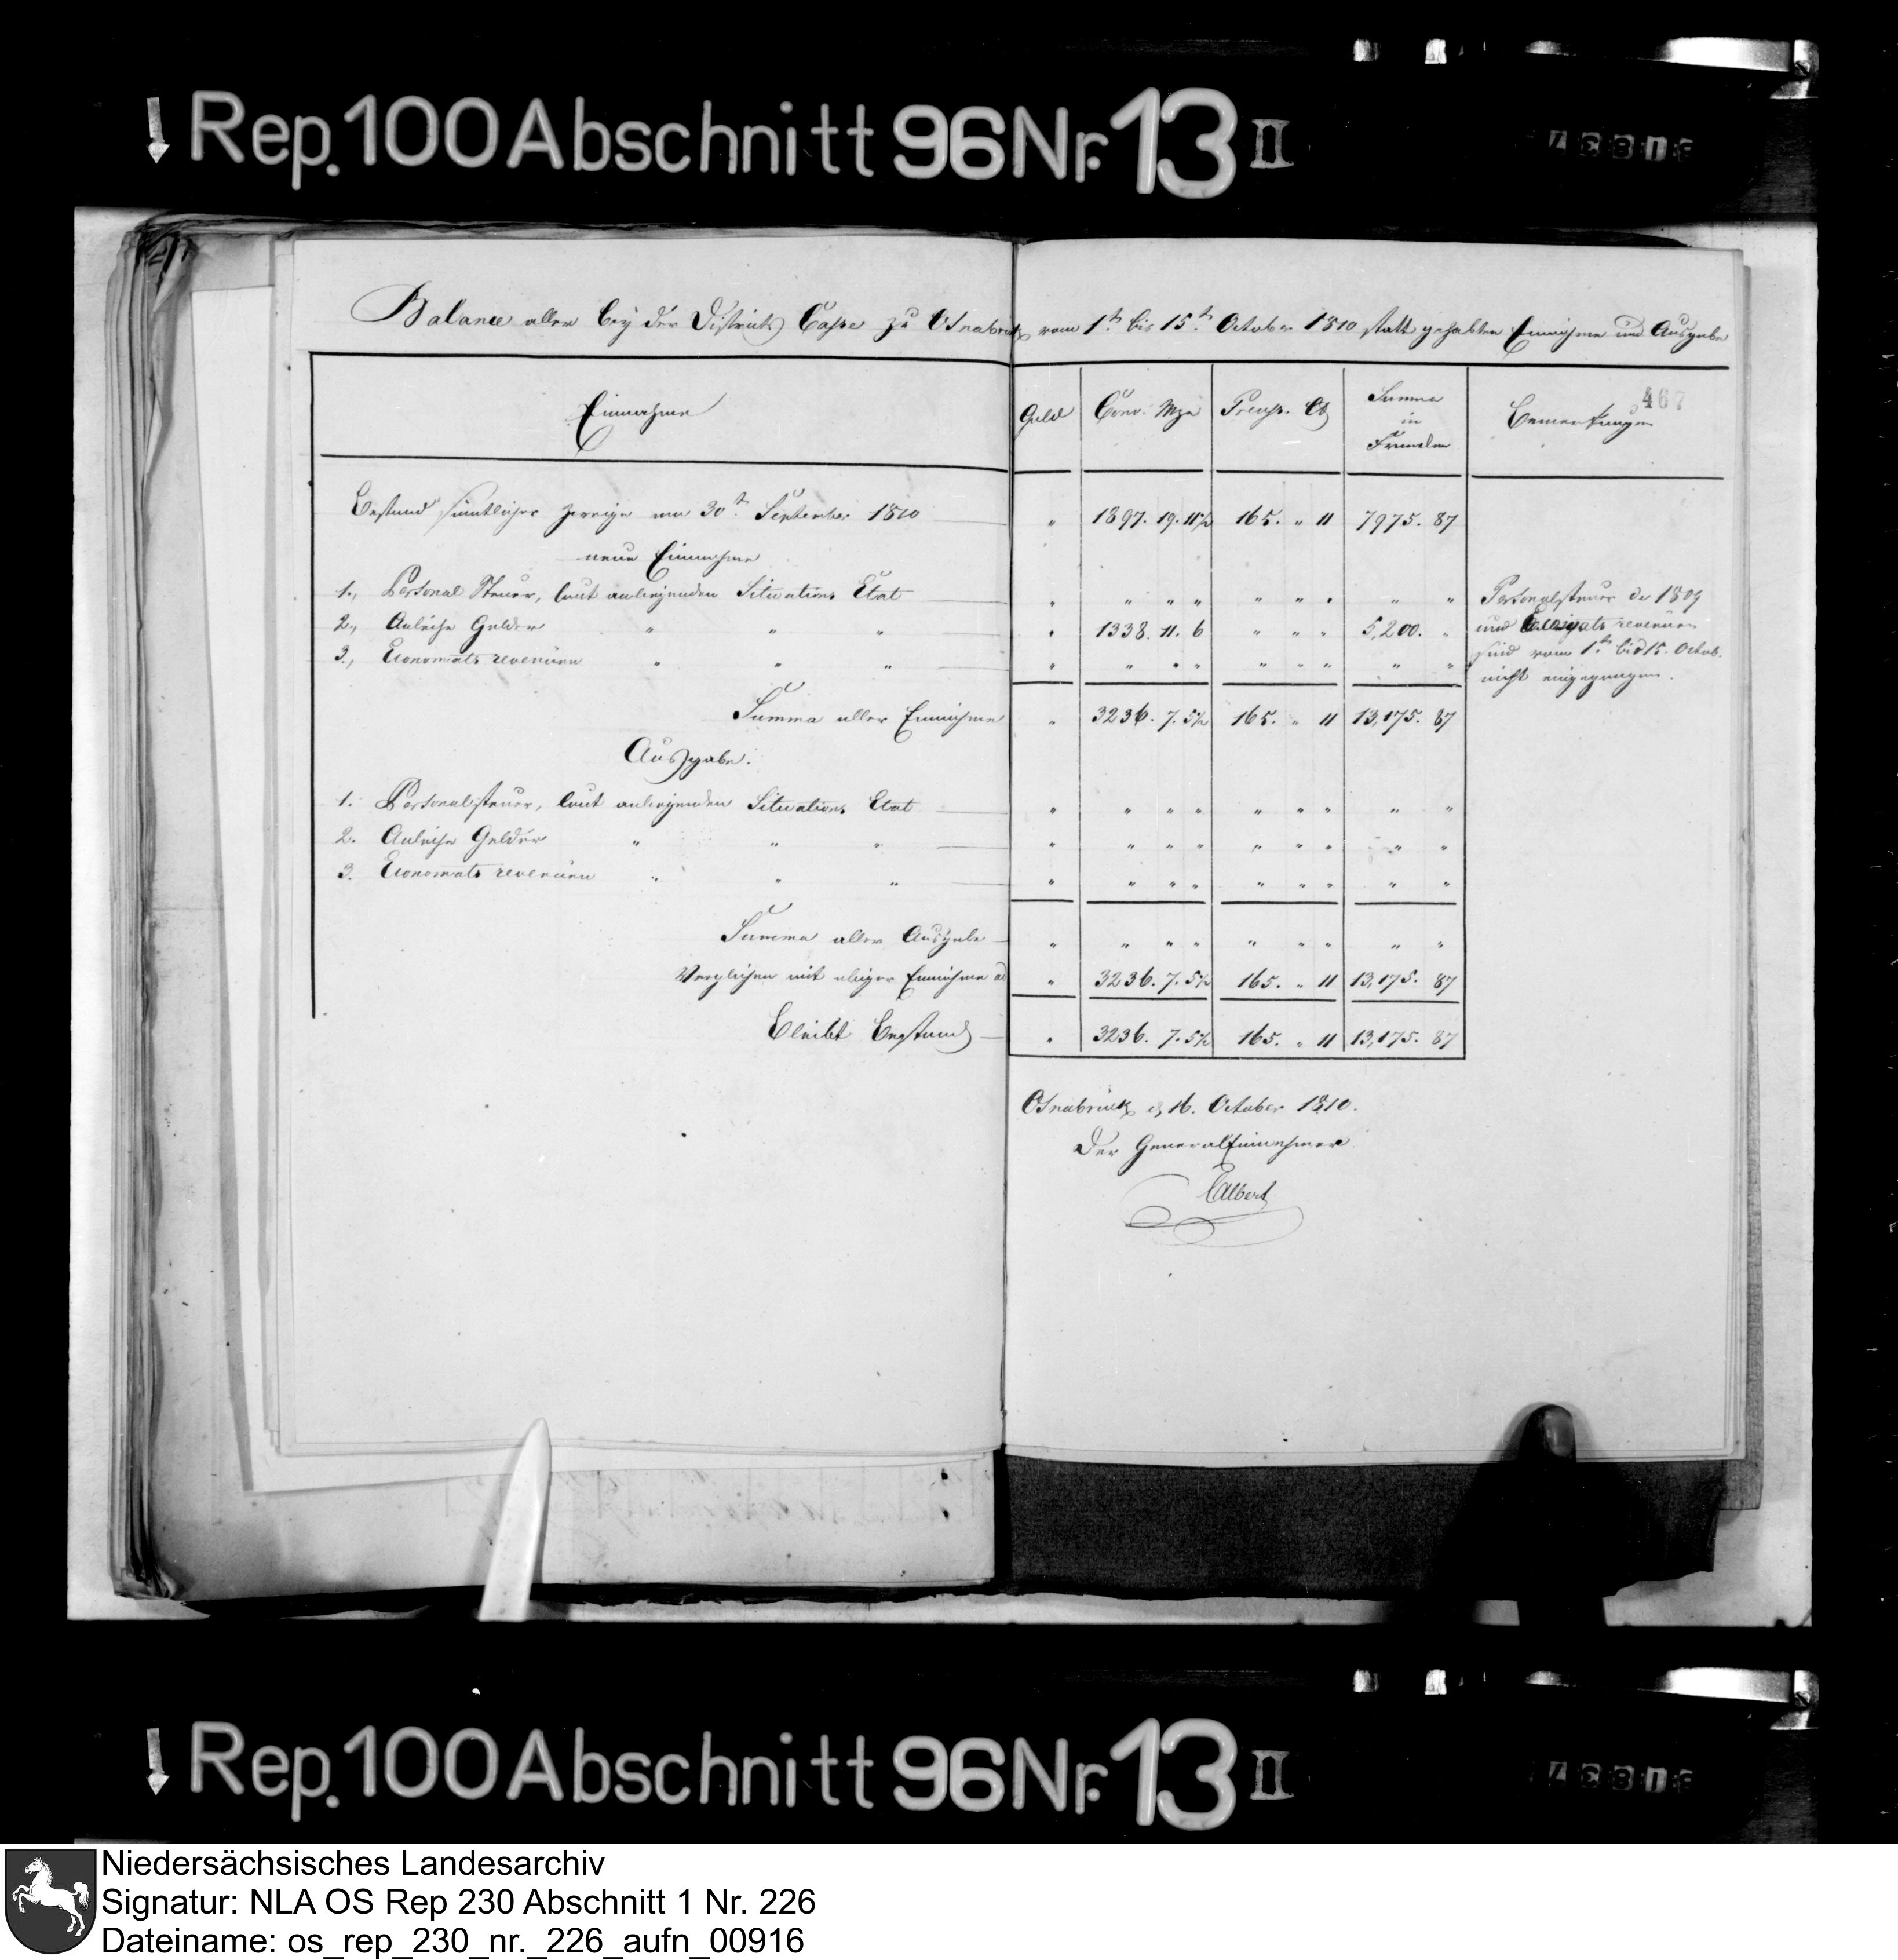 Rep. 100 Abschnitt 96 Nr. 13 II
Balance aller bey der Districts Casse zu Osnabrück vom 1t bis 15t October 1810 statt gehabten Einnahme und Ausgabe
467
Einnahme
Gold
Conv. Mze
Preuss. Ct
Summa
in
Franclen
Bemerkungen
Bestand sämtlicher Zweige am 30t September 1810 " 1897. 19. 11½ 165. " 11 7975. 87
neue Einnahme
1., Personal Steuer, laut anliegenden Situations Etat " " " " " " " " "
2., Anleihe Gelder " " " " 1338. 11. 6 " " " 5,200. "
3., Economats revenüen " " " " " " " " " " " "
Personalsteuer de 1809
und revenüen
sind vom 1t bis 15. Octob.
nicht eingegangen.
Summa aller Einnahme " 3236. 7. 5½ 165. " 11 13,175. 87
Ausgabe.
1. Personalsteuer, laut anliegenden Situations Etat " " " " " " " " "
2. Anleihe Gelder " " " " " " " " " " " "
3. Economats revenüen " " " " " " " " " " " "
Summa aller Ausgabe " " " " " " " " "
Verglichen mit obiger Einnahme ad " 3236. 7. 5½ 165. " 11 13,175. 87
Bleibt Bestand " 3236. 7. 5½ 165. " 11 13,175. 87
Osnabrück d 16. October 1810.
Der GeneralEinnehmer
Albert
Rep. 100 Abschnitt 96 Nr. 13 II
Niedersächsisches Landesarchiv
Signatur: NLA OS Rep 230 Abschnitt 1 Nr. 226
Dateiname: os_rep_230_nr._226_aufn_00916